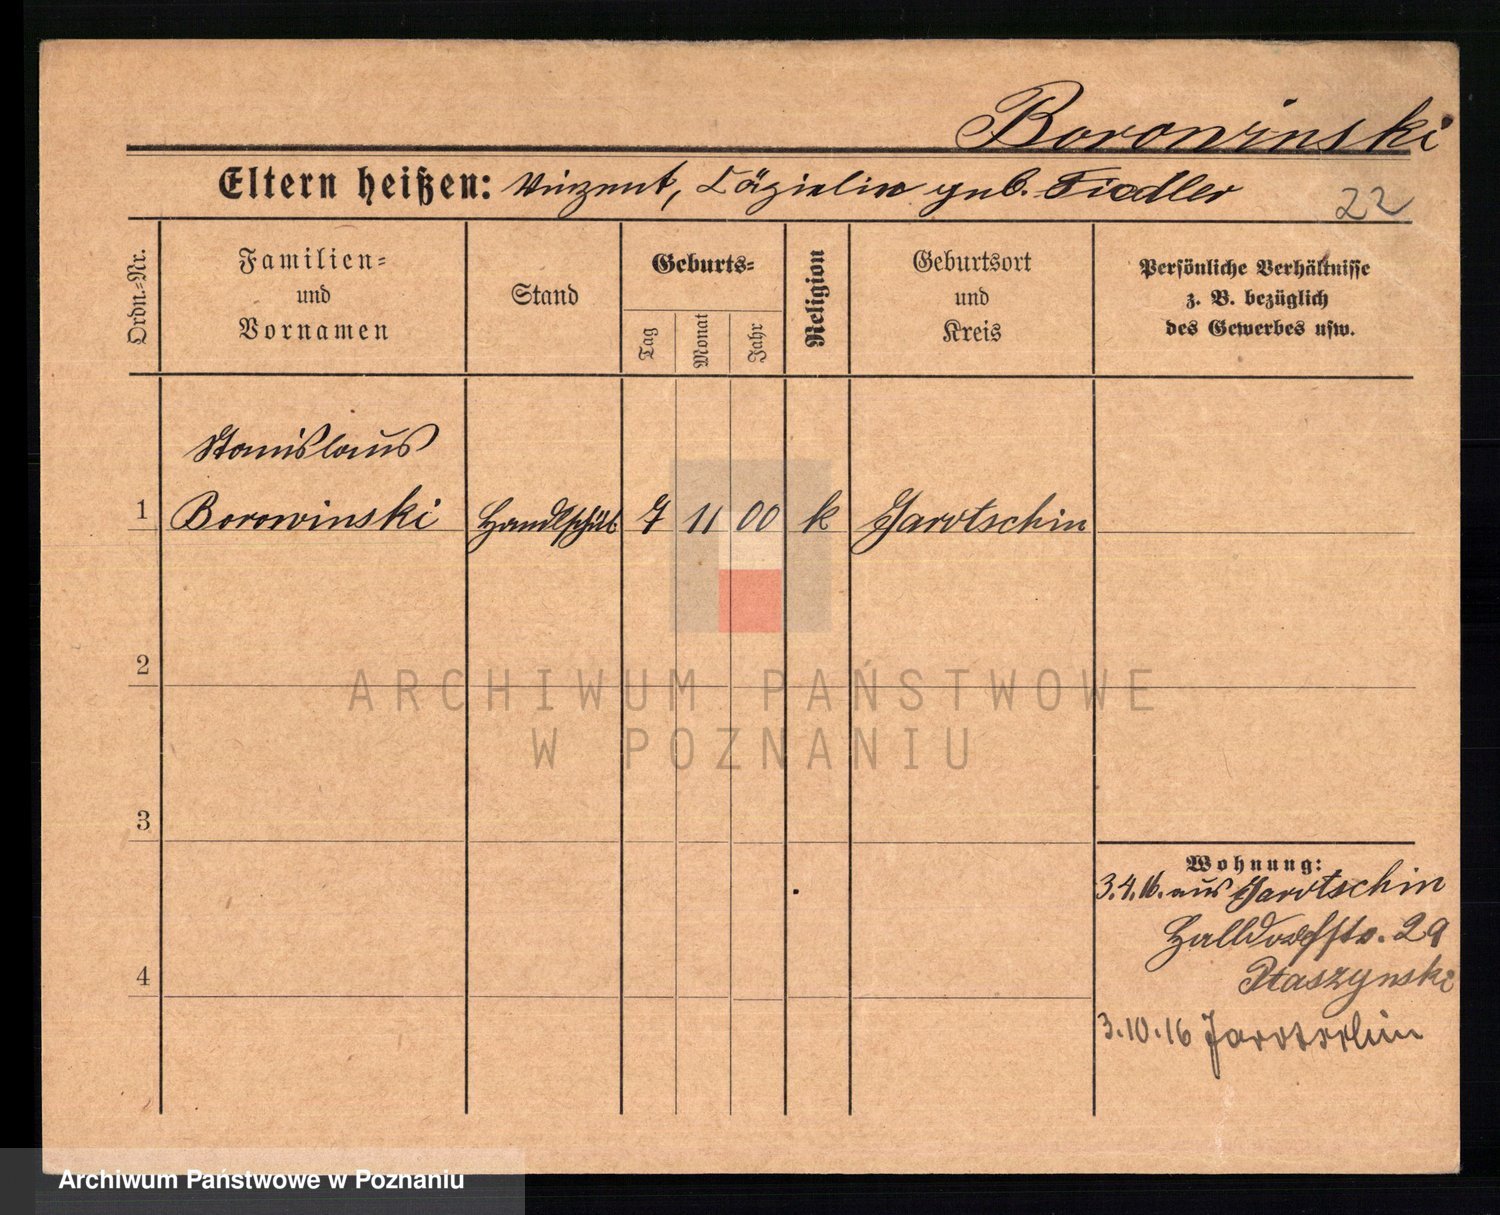 Borowinski
Eltern heißen: Vinzent, Cäzielia geb. Fiedler
22
Ordn.-Nr.
Familien-
und
Vornamen
Stand
Geburts-
Tag
Monat
Jahr
Religion
Geburtsort
und
Kreis
Persönliche Verhältnisse
z. B. bezüglich
des Gewerbes usw.
Stanislaus
1 Borowinski Handlschül. 7 11 00 k Jarotschin
2
ARCHIWUM PAŃSTWOWE
W POZNANIU
3
Wohnung:
3.4.16. aus Jarotschin
Halldorfstr. 29
4 Ptaszynski
3.10.16 Jarotschin
Archiwum Państwowe w Poznaniu